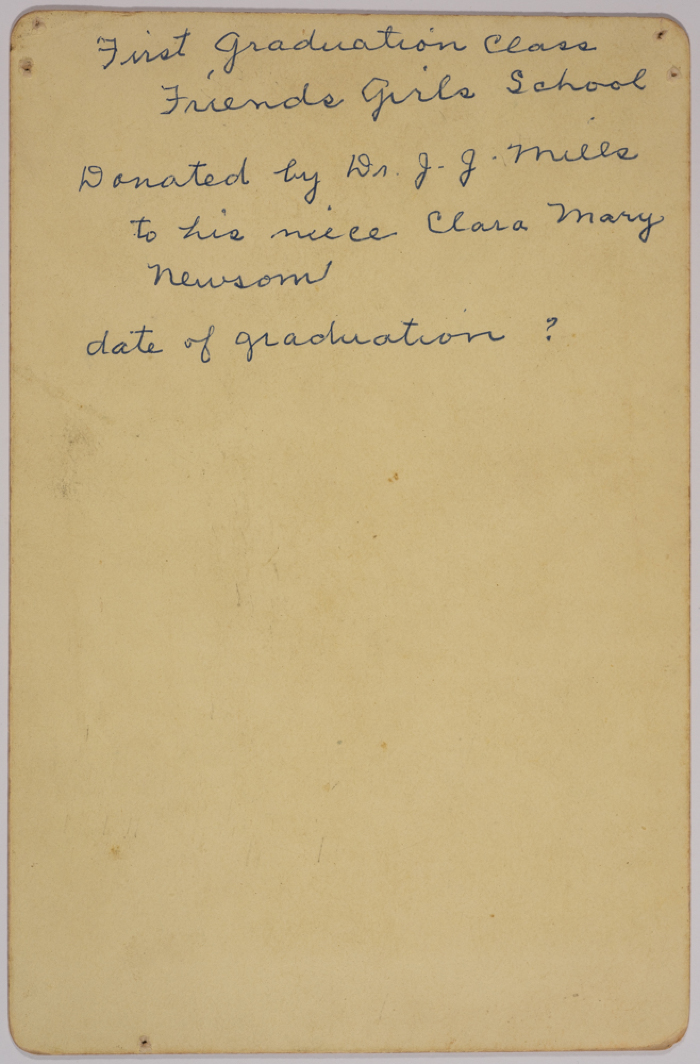 First Graduation Class
Friends Girls School
Donated by Dr. J. J. Mills
to his niece Clara Mary
Newsom
date of graduation ?